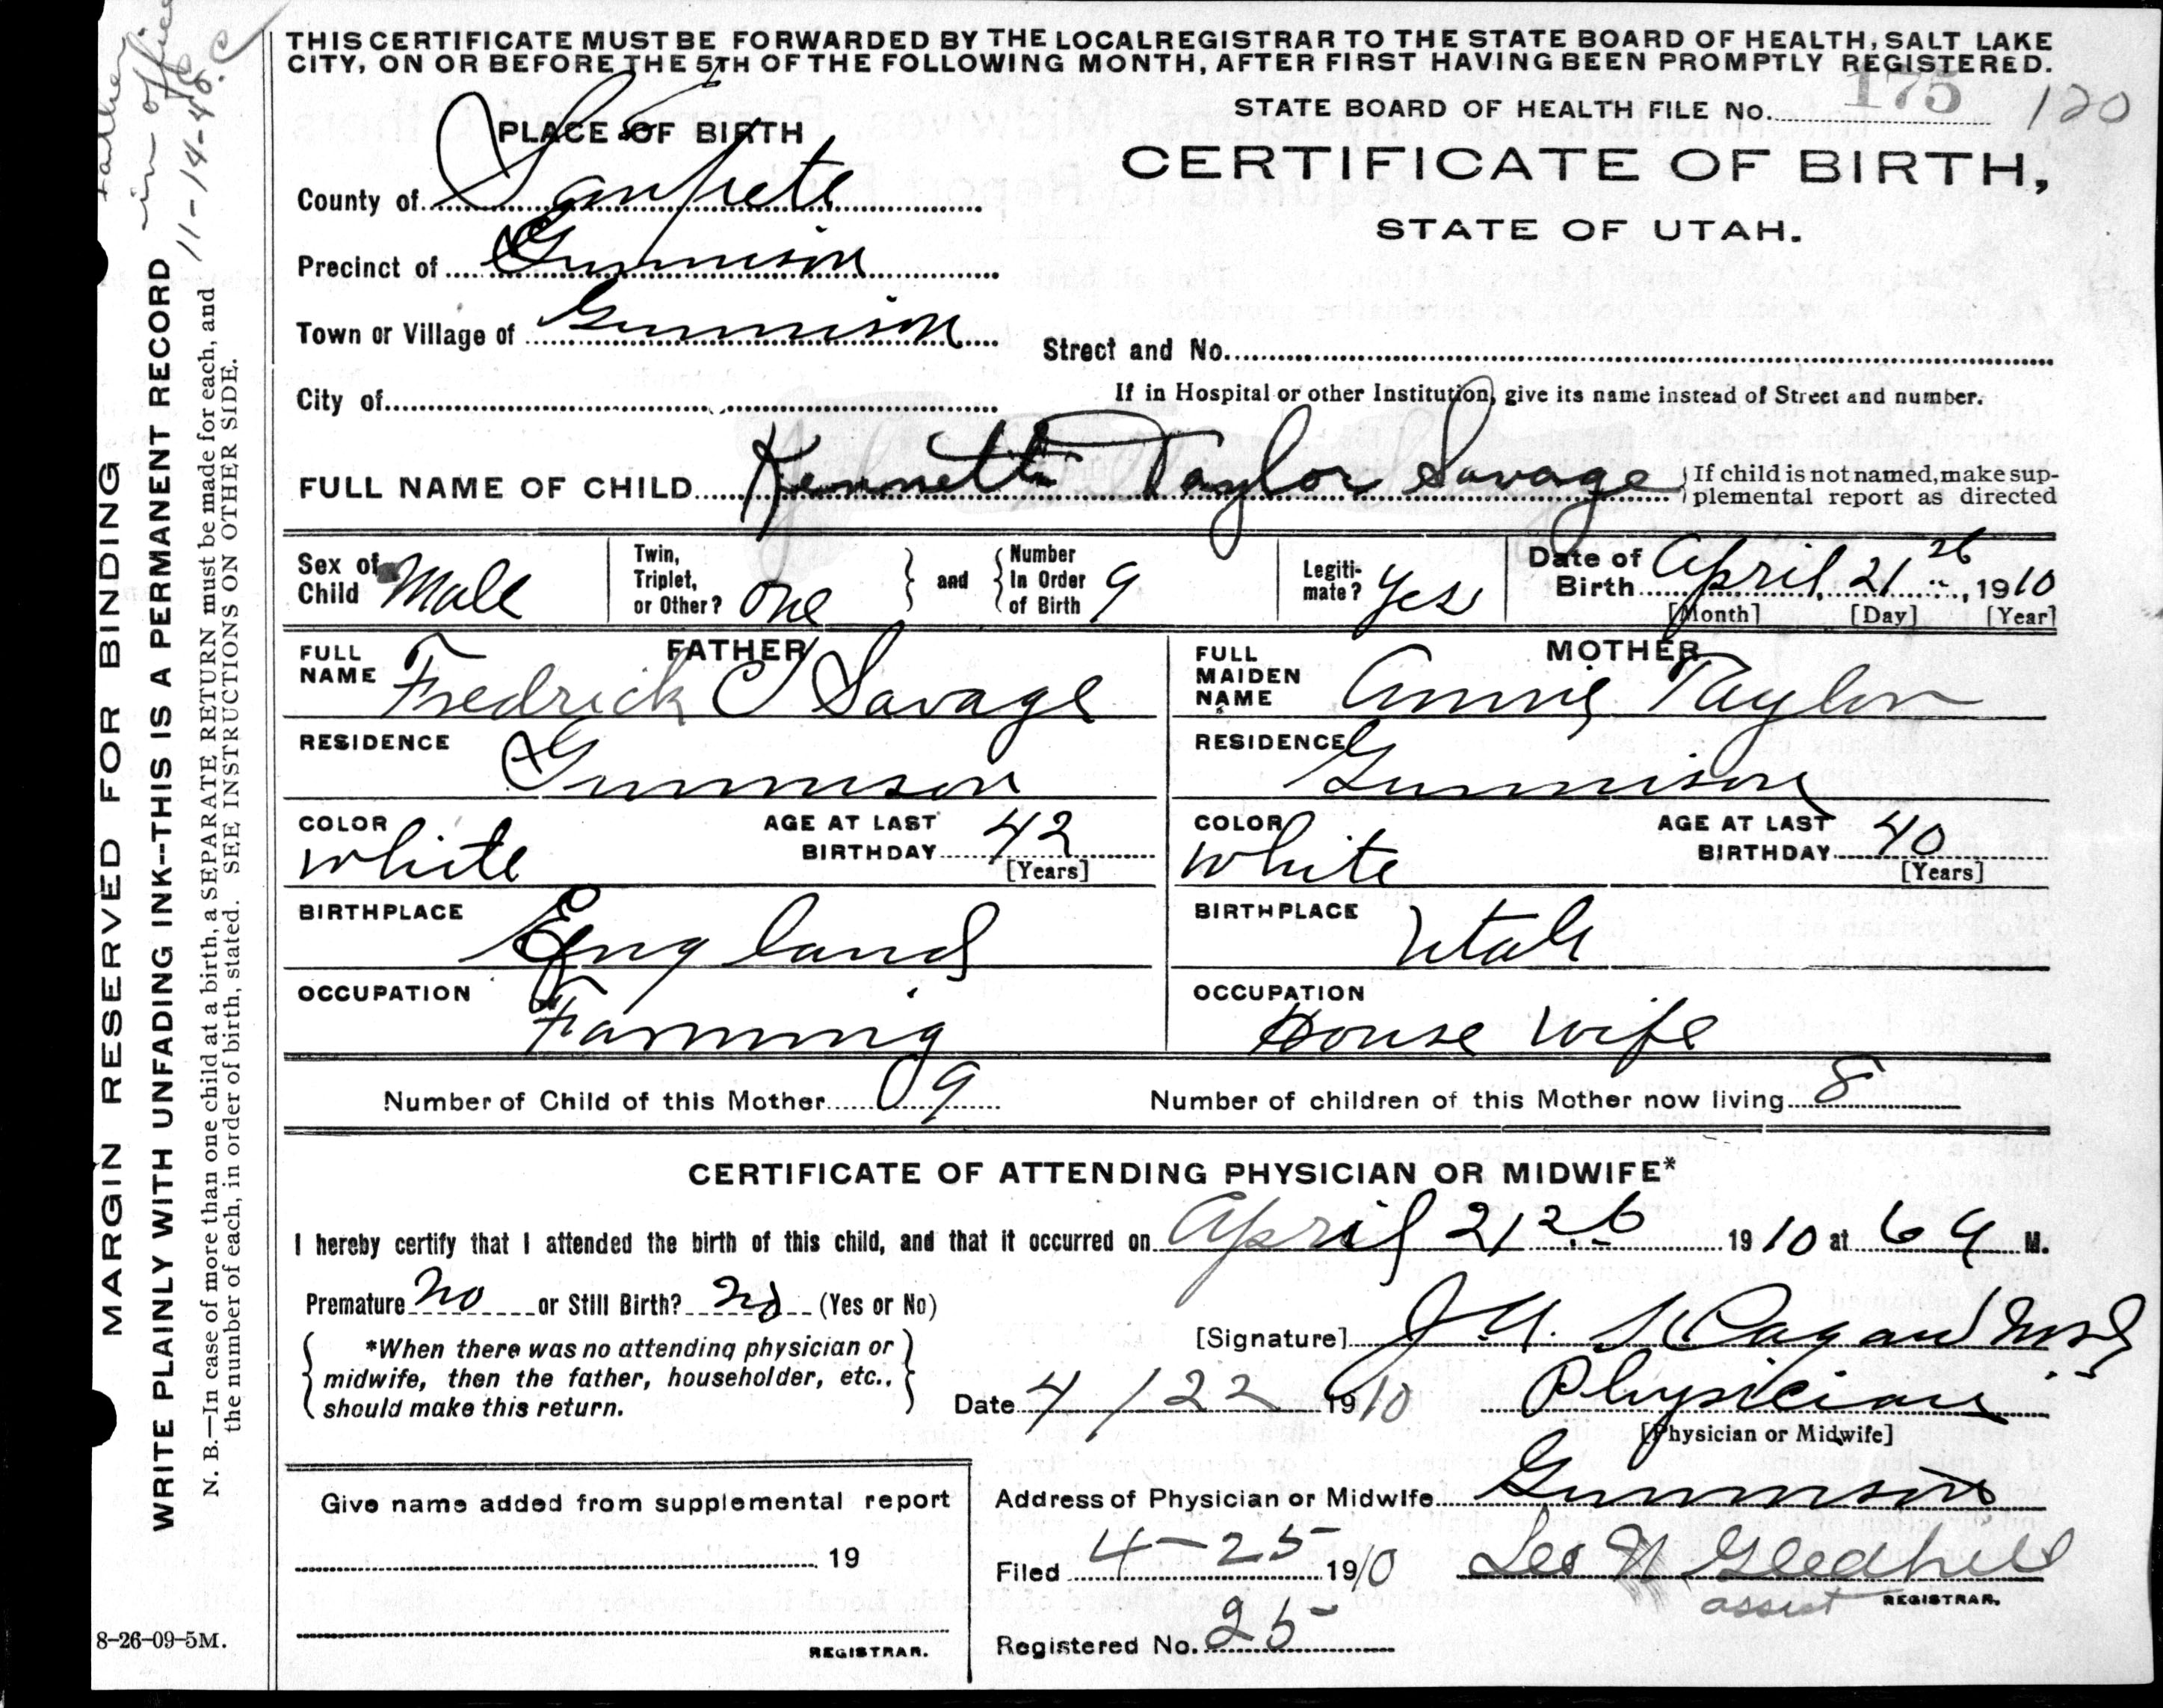 Father
in office
11-14-48. C
THIS CERTIFICATE MUST BE FORWARDED BY THE LOCAL REGISTRAR TO THE STATE BOARD OF HEALTH, SALT LAKE
CITY, ON OR BEFORE THE 5TH OF THE FOLLOWING MONTH, AFTER FIRST HAVING BEEN PROMPTLY REGISTERED.
STATE BOARD OF HEALTH FILE No. 175 120
PLACE OF BIRTH
CERTIFICATE OF BIRTH,
STATE OF UTAH.
County of Sanpete
Precinct of Gunnison
Town or Village of Gunnison
Street and No.
City of
If in Hospital or other Institution, give its name instead of Street and number.
FULL NAME OF CHILD Kenneth Taylor Savage
If child is not named, make sup-
plemental report as directed
Sex of Child Male
Twin, Triplet, or Other? one
and
Number In Order of Birth 9
Legiti-mate? Yes
Date of Birth April, 21, 1910
[Month] [Day] [Year]
FATHER
FULL NAME Fredrick C Savage
RESIDENCE Gunnison
COLOR White
AGE AT LAST BIRTHDAY 42
[Years]
BIRTHPLACE England
OCCUPATION Farming
MOTHER
FULL MAIDEN NAME Annie Taylor
RESIDENCE Gunnison
COLOR White
AGE AT LAST BIRTHDAY 40
[Years]
BIRTHPLACE Utah
OCCUPATION House wife
Number of Child of this Mother 9
Number of children of this Mother now living 8
CERTIFICATE OF ATTENDING PHYSICIAN OR MIDWIFE*
I hereby certify that I attended the birth of this child, and that it occurred on April 21 1910 at 6 a M.
Premature no or Still Birth? no (Yes or No)
*When there was no attending physician or
midwife, then the father, householder, etc.,
should make this return.
[Signature] Hagan
Date 4/22 1910
Physician
[Physician or Midwife]
Address of Physician or Midwife Gunnison
Filed 4-25 1910 Gledhill
assist REGISTRAR.
Registered No. 25
Give name added from supplemental report
19
REGISTRAR.
MARGIN RESERVED FOR BINDING
WRITE PLAINLY WITH UNFADING INK--THIS IS A PERMANENT RECORD
N. B.—In case of more than one child at a birth, a SEPARATE RETURN must be made for each, and
the number of each, in order of birth, stated. SEE INSTRUCTIONS ON OTHER SIDE.
8-26-09-5M.